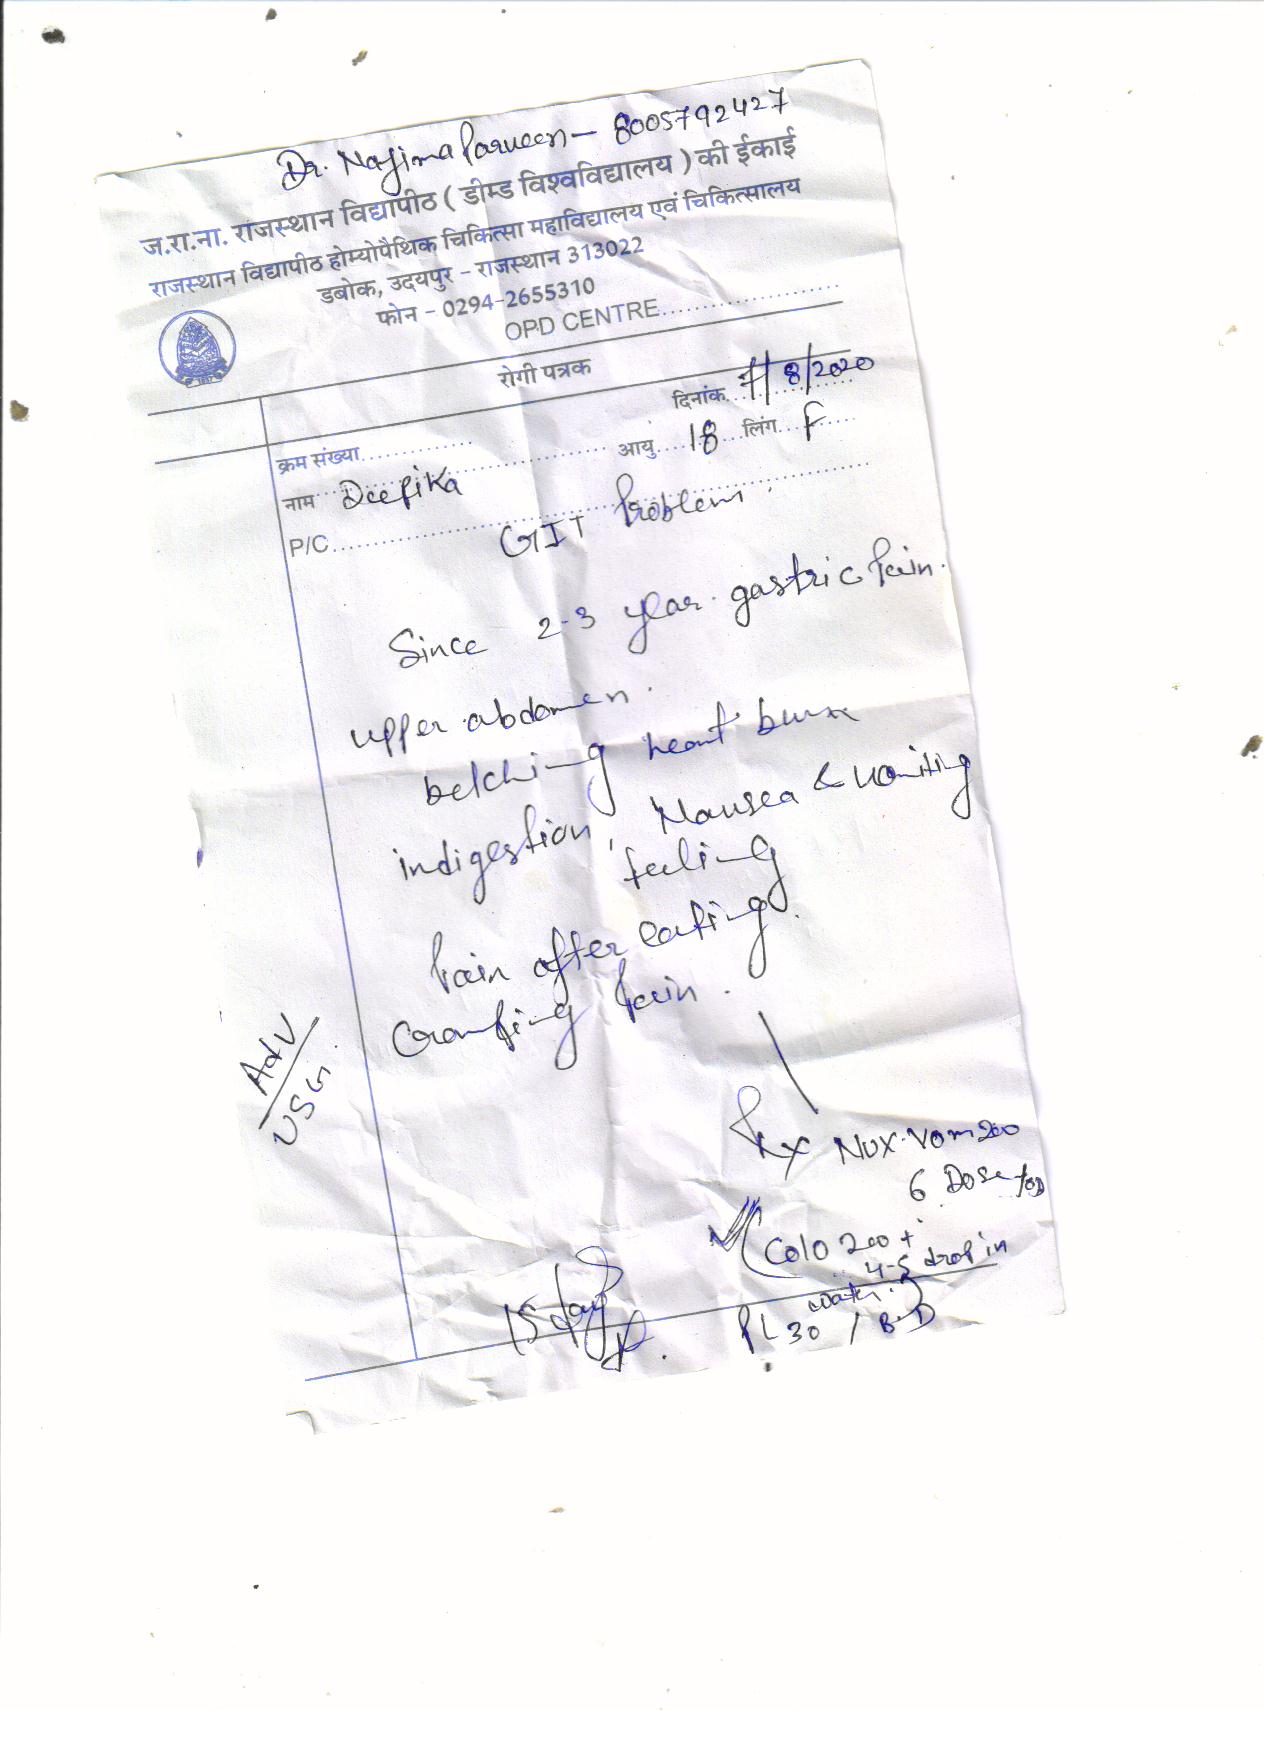 Dr. Najima Parveen - 8005792427
ज.रा.ना. राजस्थान विद्यापीठ ( डीम्ड विश्वविद्यालय ) की ईकाई
राजस्थान विद्यापीठ होम्योपैथिक चिकित्सा महाविद्यालय एवं चिकित्सालय
डबोक, उदयपुर - राजस्थान 313022
फोन - 0294-2655310
OPD CENTRE....................
रोगी पत्रक
दिनांक. 7/8/2020
क्रम संख्या..................
नाम Deepika आयु 18 लिंग F
P/C GIT Problem.
Since 2-3 year. gastric pain.
upper abdomen.
belching heart burn
indigestion, Nausea & vomiting
feeling
pain after eating.
Cramping pain.
Adv
USG
Rx Nux-Vom 200
6 Dose /OD
Colo 200 +
4-5 drop in
water.
PL 30 / B.D
15 day